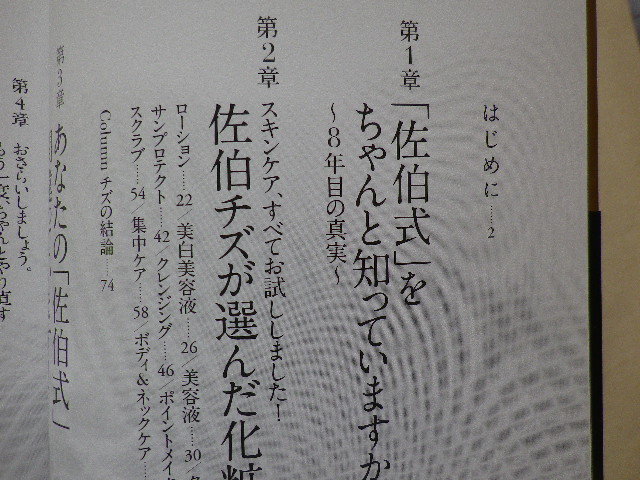 はじめに……2
第1章 「佐伯式」を
ちゃんと知っていますか
～8年目の真実～
第2章 スキンケア、すべてお試ししました！
佐伯チズが選んだ化粧
ローション……22／美白美容液……26／美容液……30／
サンプロテクト……42／クレンジング……46／ポイントメイク
スクラブ……54／集中ケア……58／ボディ＆ネックケア……
Column チズの結論……74
第3章 あなたの「佐伯式」
第4章 おさらいしましょう。
もう一度、ちゃんとやり直す